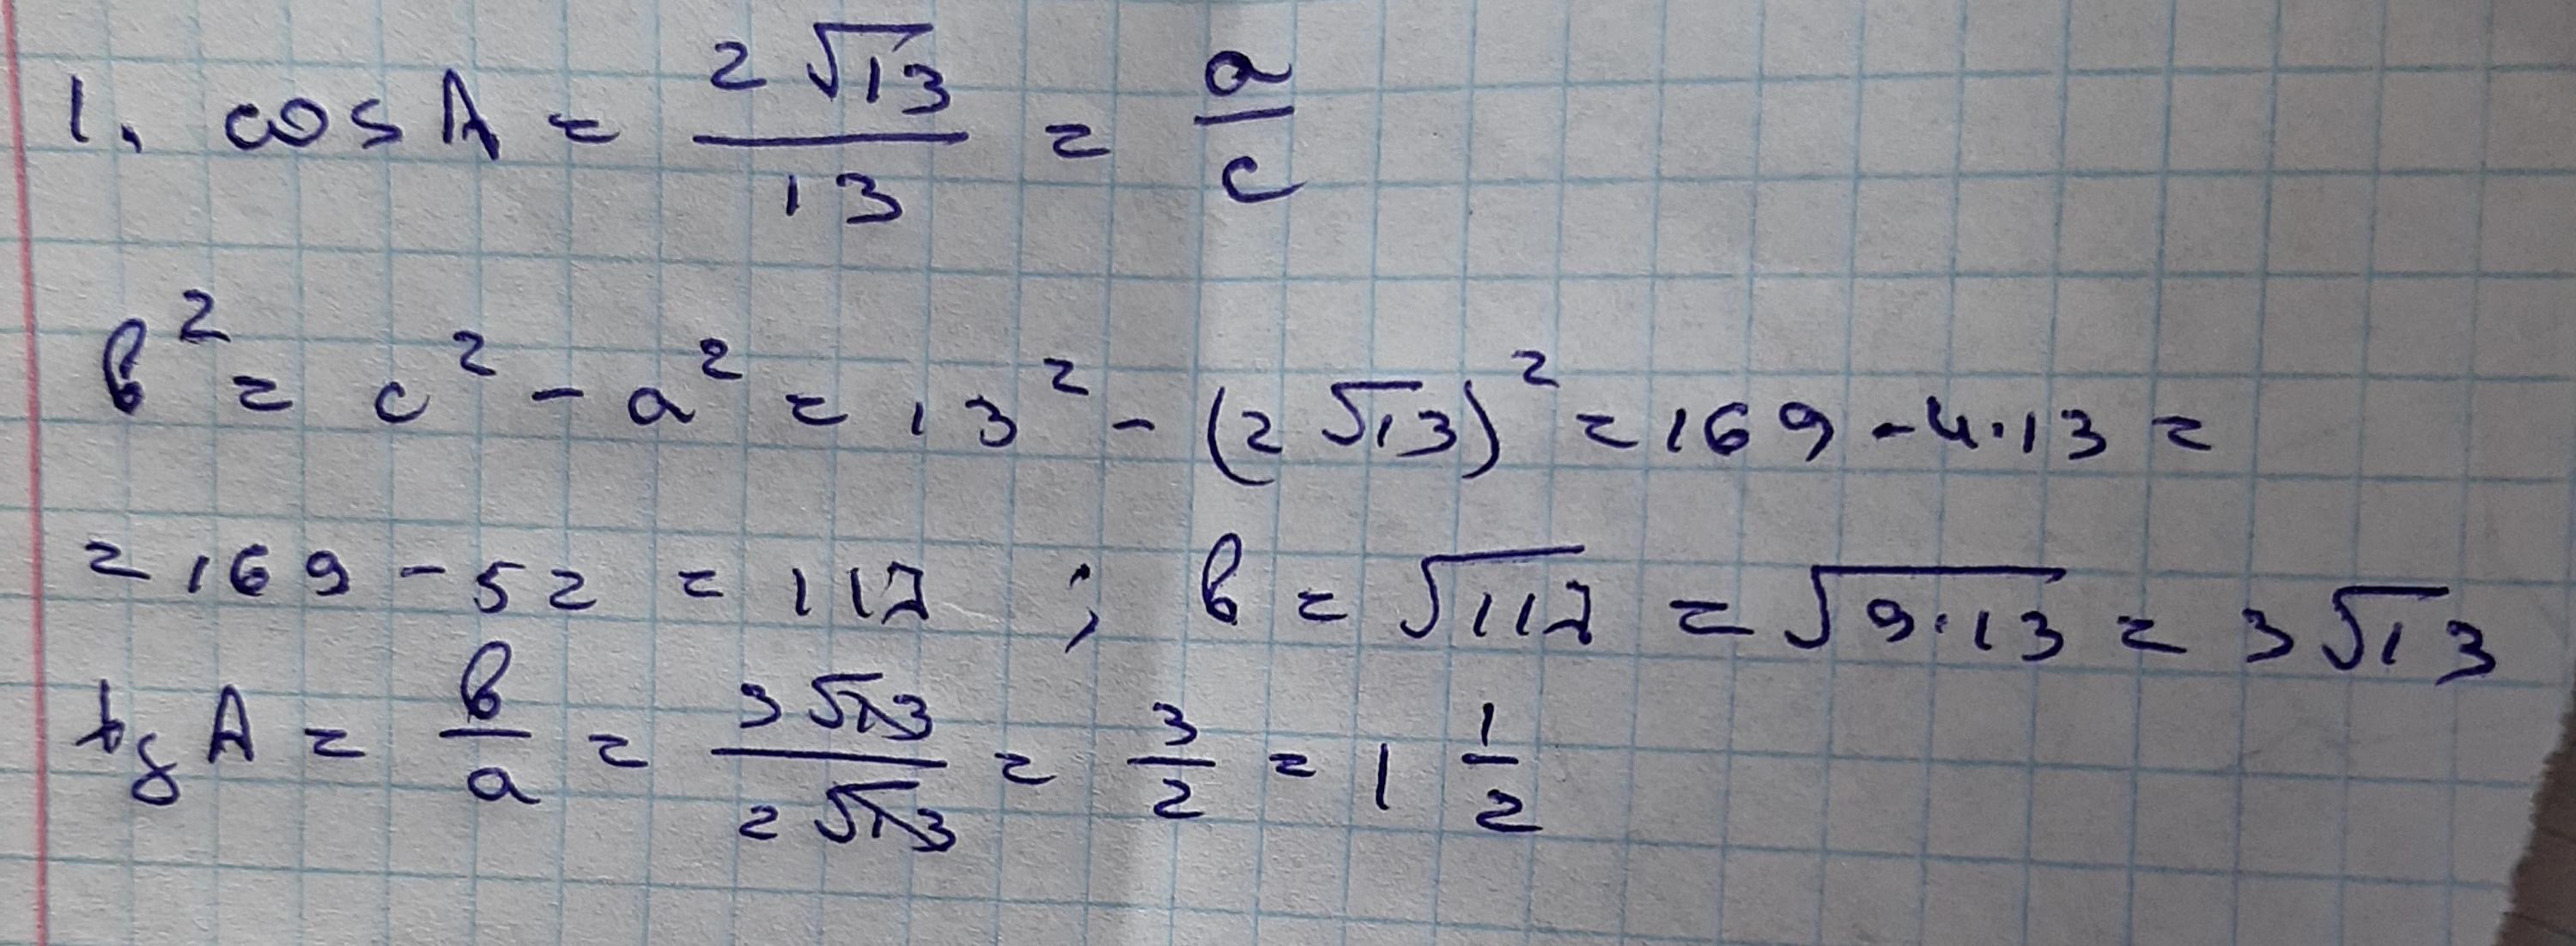 1. cos A = 2√13/13 = a/c
b² = c² - a² = 13² - (2√13)² = 169 - 4·13 =
= 169 - 52 = 117 ; b = √117 = √9·13 = 3√13
tg A = b/a = 3√13/2√13 = 3/2 = 1 1/2